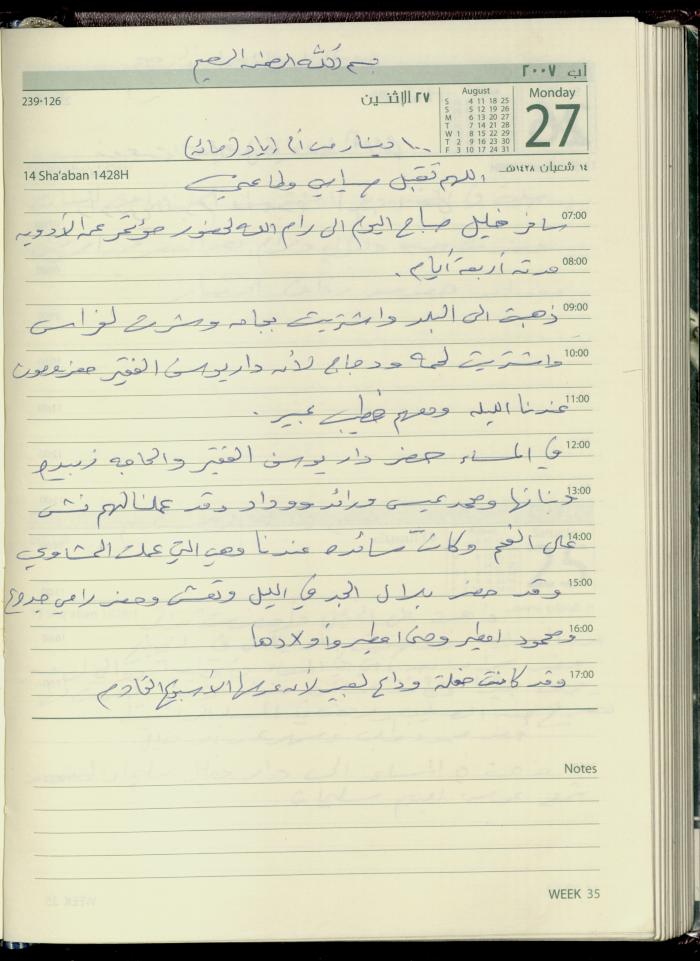 بسم الله الرحمن الرحيم
آب ٢٠٠٧
239-126
٢٧ الاثنين
August
S 4 11 18 25
S 5 12 19 26
M 6 13 20 27
T 7 14 21 28
W 1 8 15 22 29
T 2 9 16 23 30
F 3 10 17 24 31
Monday
27
١٠٠ دينار من أم إياد (مائة)
14 Sha'aban 1428H
١٤ شعبان ١٤٢٨هـ
اللهم تقبل صيامي وطاعتي
07:00 سافر خليل صباح اليوم الى رام الله لحضور مؤتمر عن الأدوية
08:00 مدته أربعة أيام .
09:00 ذهبت الى البلد واشتريت بجامه وشرح لفراس
10:00 واشتريت لحمه ودجاج لأنه دار يوسف الفقير معزومون
11:00 عندنا الليله ومعهم خطيب عبير .
12:00 في المساء حضر دار يوسف الفقير والحاجه زبيده
13:00 وبناتها ومحمد عيسى ورائد ووداد وقد عملنالهم نش
14:00 على الفحم وكانت سائده عندنا وهي التي عملت المشاوي
15:00 وقد حضر بلال الجد في الليل وتعشى وحضر رامي جدوع
16:00 ومحمود امطير ومنى امطير وأولادها
17:00 وقد كانت حفلة وداع لعبير لأنه عرسها الأسبوع القادم
Notes
WEEK 35